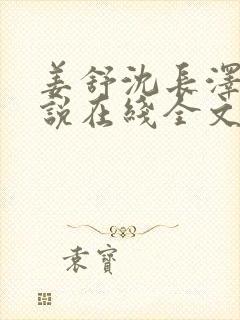 姜舒沈長澤
說在綫全文
袁寶